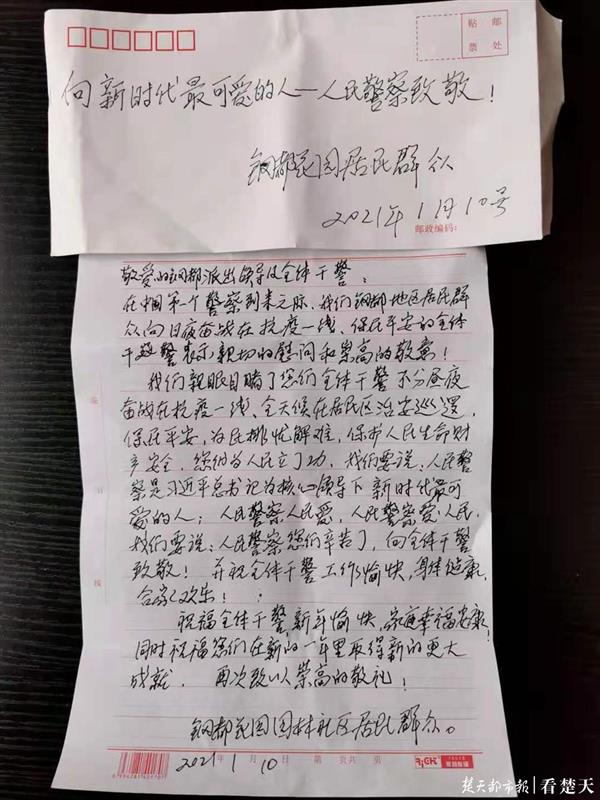 贴 邮
票 处
向新时代最可爱的人—人民警察致敬！
钢都花园居民群众
2021年1月10号
邮政编码：
敬爱的钢都派出领导及全体干警：
在中国第一个警察到来之际、我们钢都地区居民群
众向日夜奋战在抗疫一线、保民平安的全体
干警表示亲切的慰问和崇高的敬意！
我们亲眼目睹了您们全体干警不分昼夜
奋战在抗疫一线、全天候在居民区治安巡逻，
保民平安，为民排忧解难，保护人民生命财
产安全，您们为人民立了功，我们要说：人民警
察是习近平总书记为核心领导下新时代最可
爱的人；人民警察人民爱，人民警察爱人民，
我们要说：人民警察您们辛苦了，向全体干警
致敬！并祝全体干警工作愉快，身体健康，
合家欢乐！
祝福全体干警新年愉快，家庭幸福安康！
同时祝福您们在新的一年里取得新的更大
成就．再次致以崇高的敬礼！
钢都花园园林社区居民群众。
2021年1月10日 第 页共 页
楚天都市报 | 看楚天